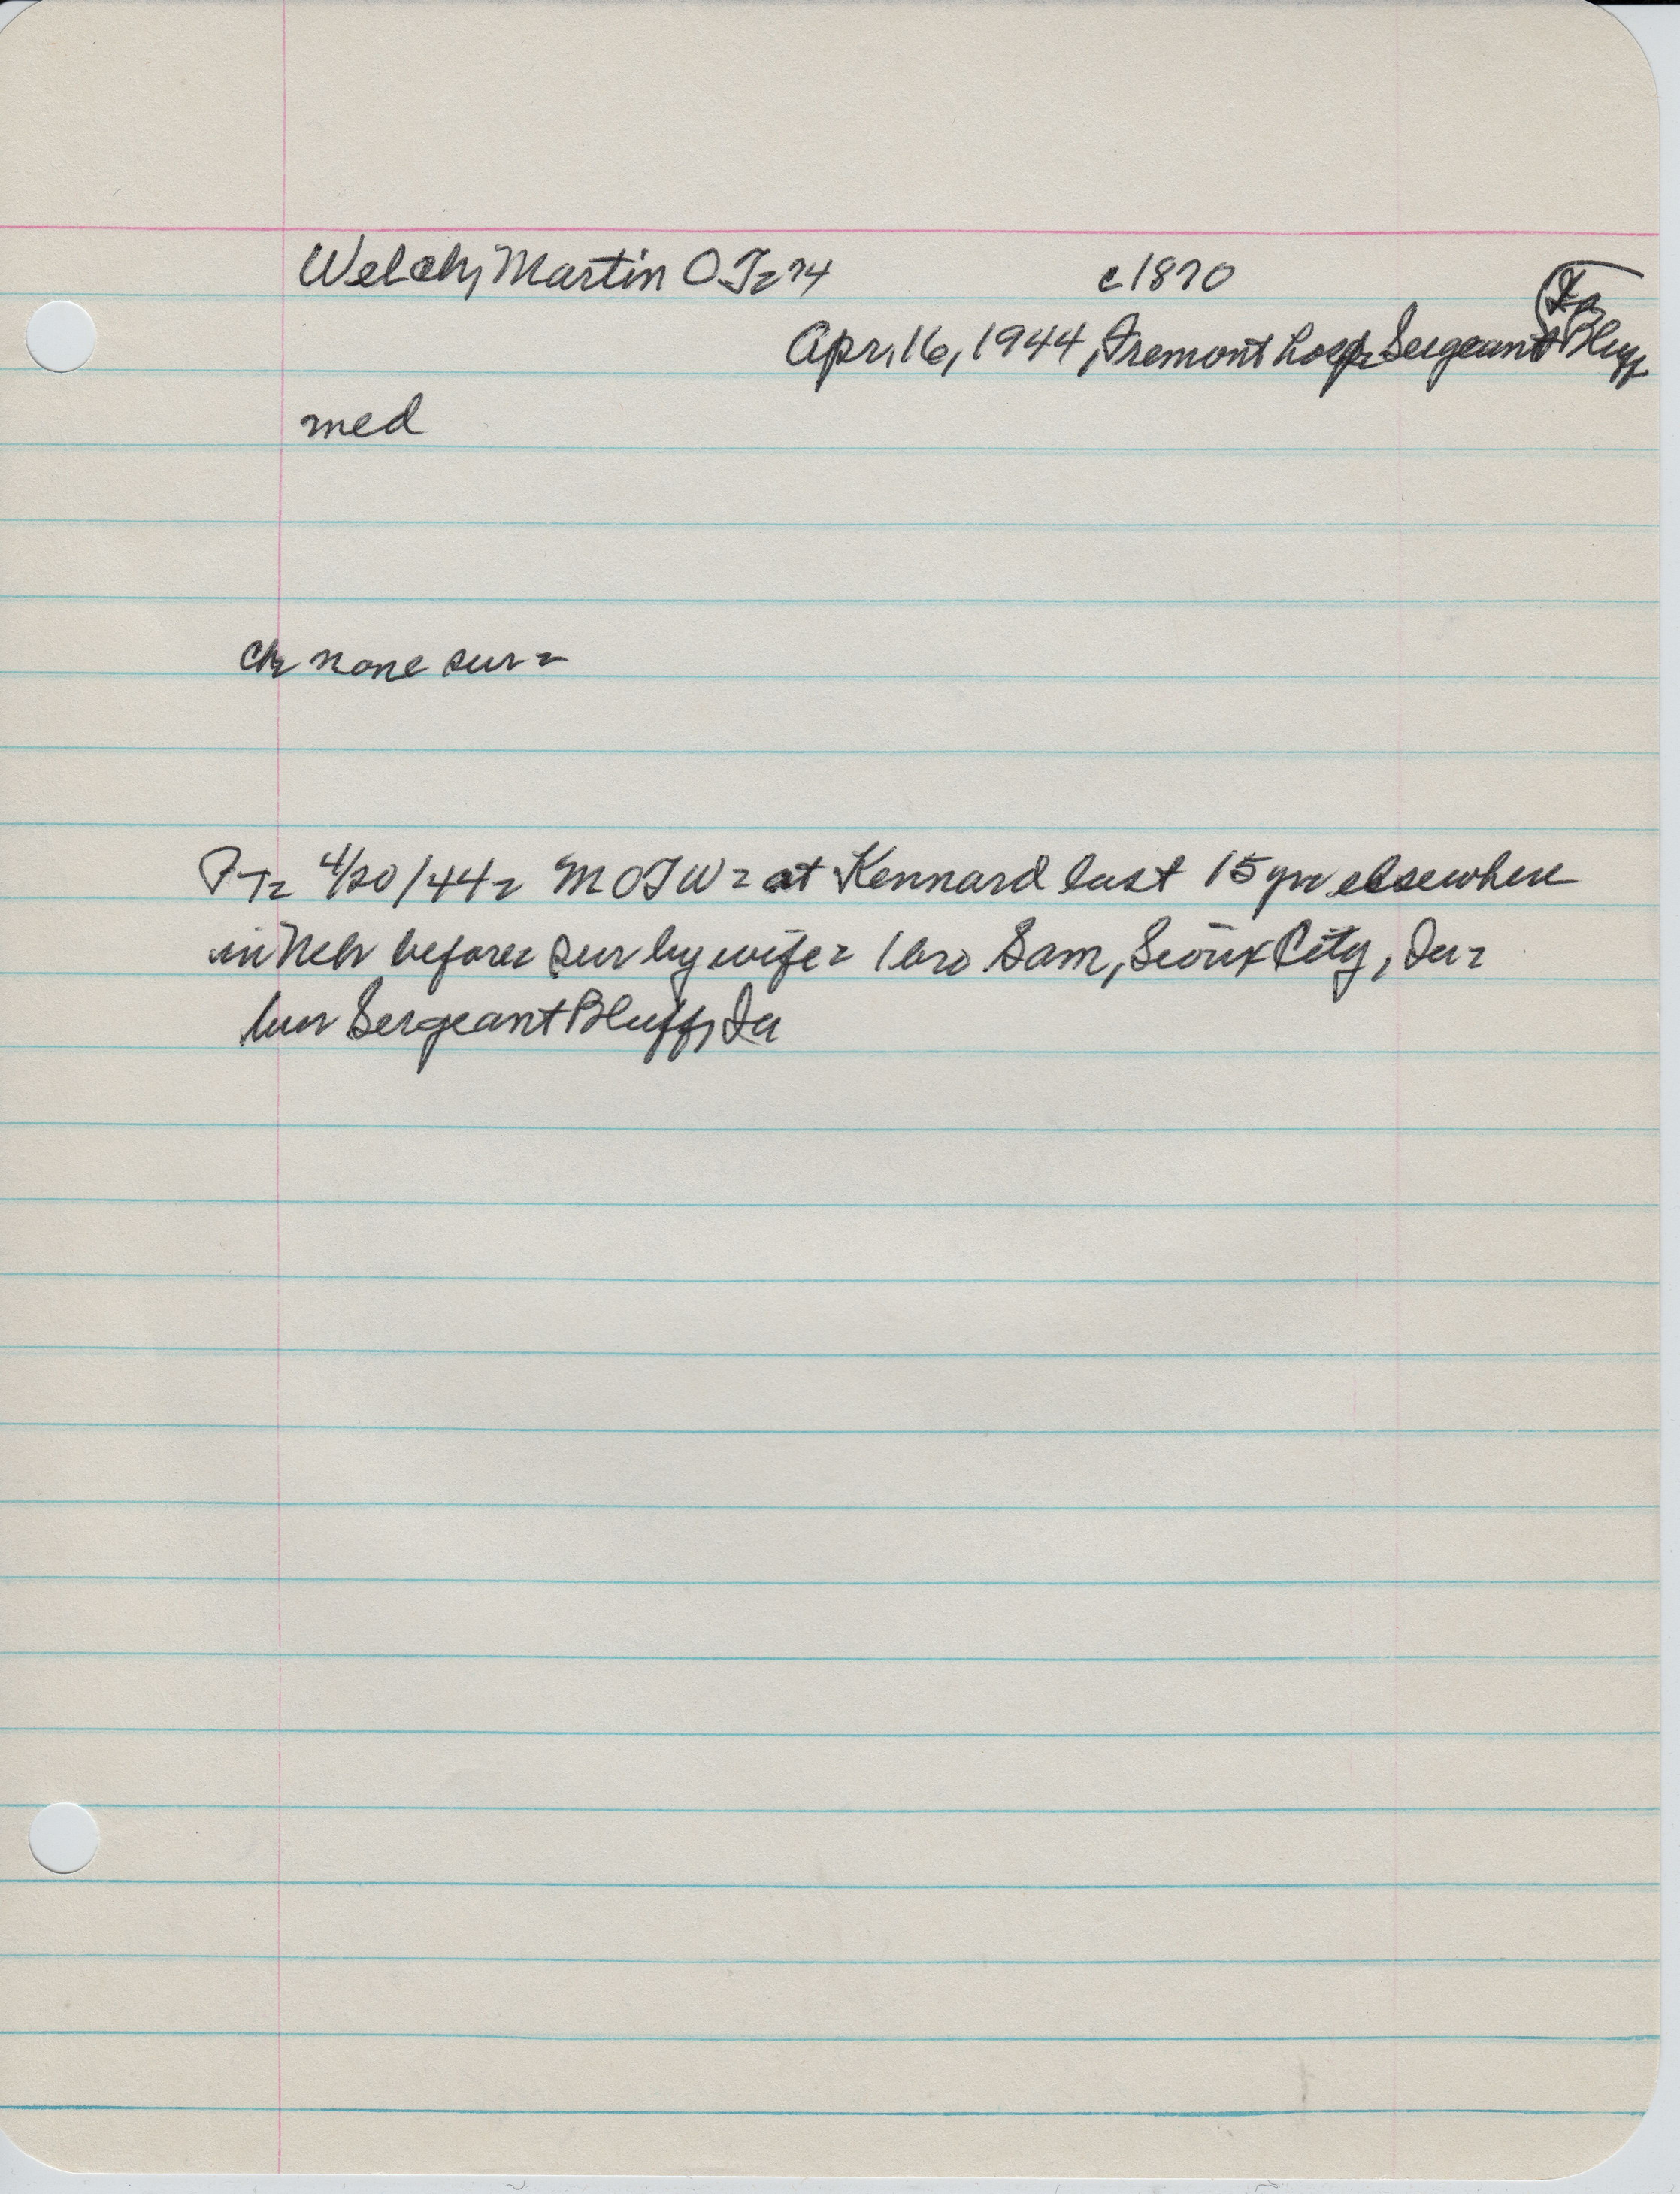 Welch, Martin OT- 74 c1870
Ia
Apr. 16, 1944, Fremont hosp- Sergeant Bluff
med
ch- none sur-
PT- 4/20/44- MOTW- at Kennard last 15 yrs elsewhere
in Neb before- sur by wife- 1 bro Sam, Sioux City, Ia-
bur Sergeant Bluff, Ia